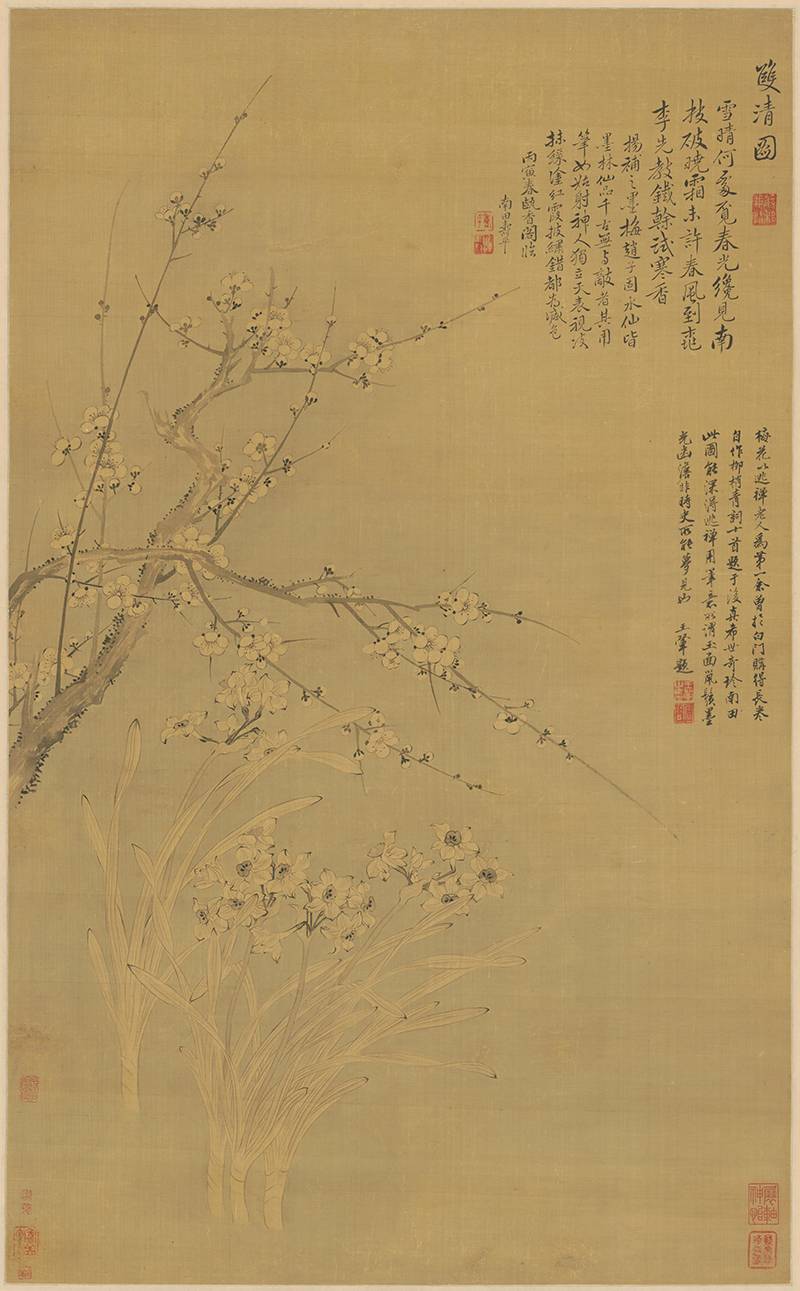 雙清圖
雪晴何處覓春光纔見南
枝破曉霜未許春風到桃
李先教鐵幹試寒香
揚補之墨梅趙子固水仙皆
墨林仙品千古無與敵者其用
筆如姑射神人獨立天表視凌
抹綠塗紅霞披縟錯都為減色
丙寅春甌香閣臨
南田壽平
梅花以逃禪老人為第一余曾於白門購得長卷
自作柳梢青詞十首題于後真希世奇珍南田
此圖能深得逃禪用筆意所謂玉面鼠鬚墨
光幽澹非時史所能夢見也 王翬題